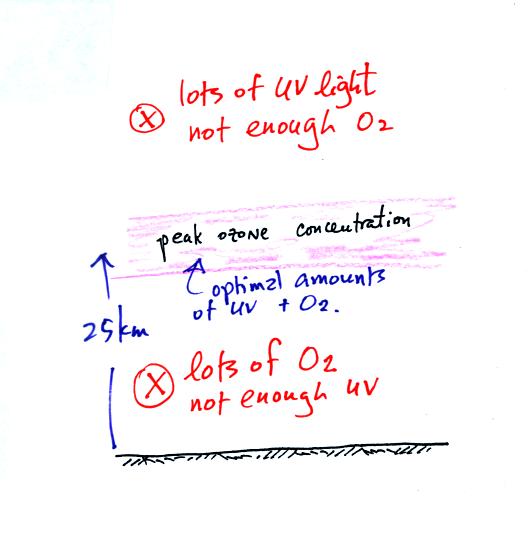 lots of UV light
not enough O2
X
peak ozone concentration
optimal amounts
of UV + O2.
25km
lots of O2
X
not enough UV